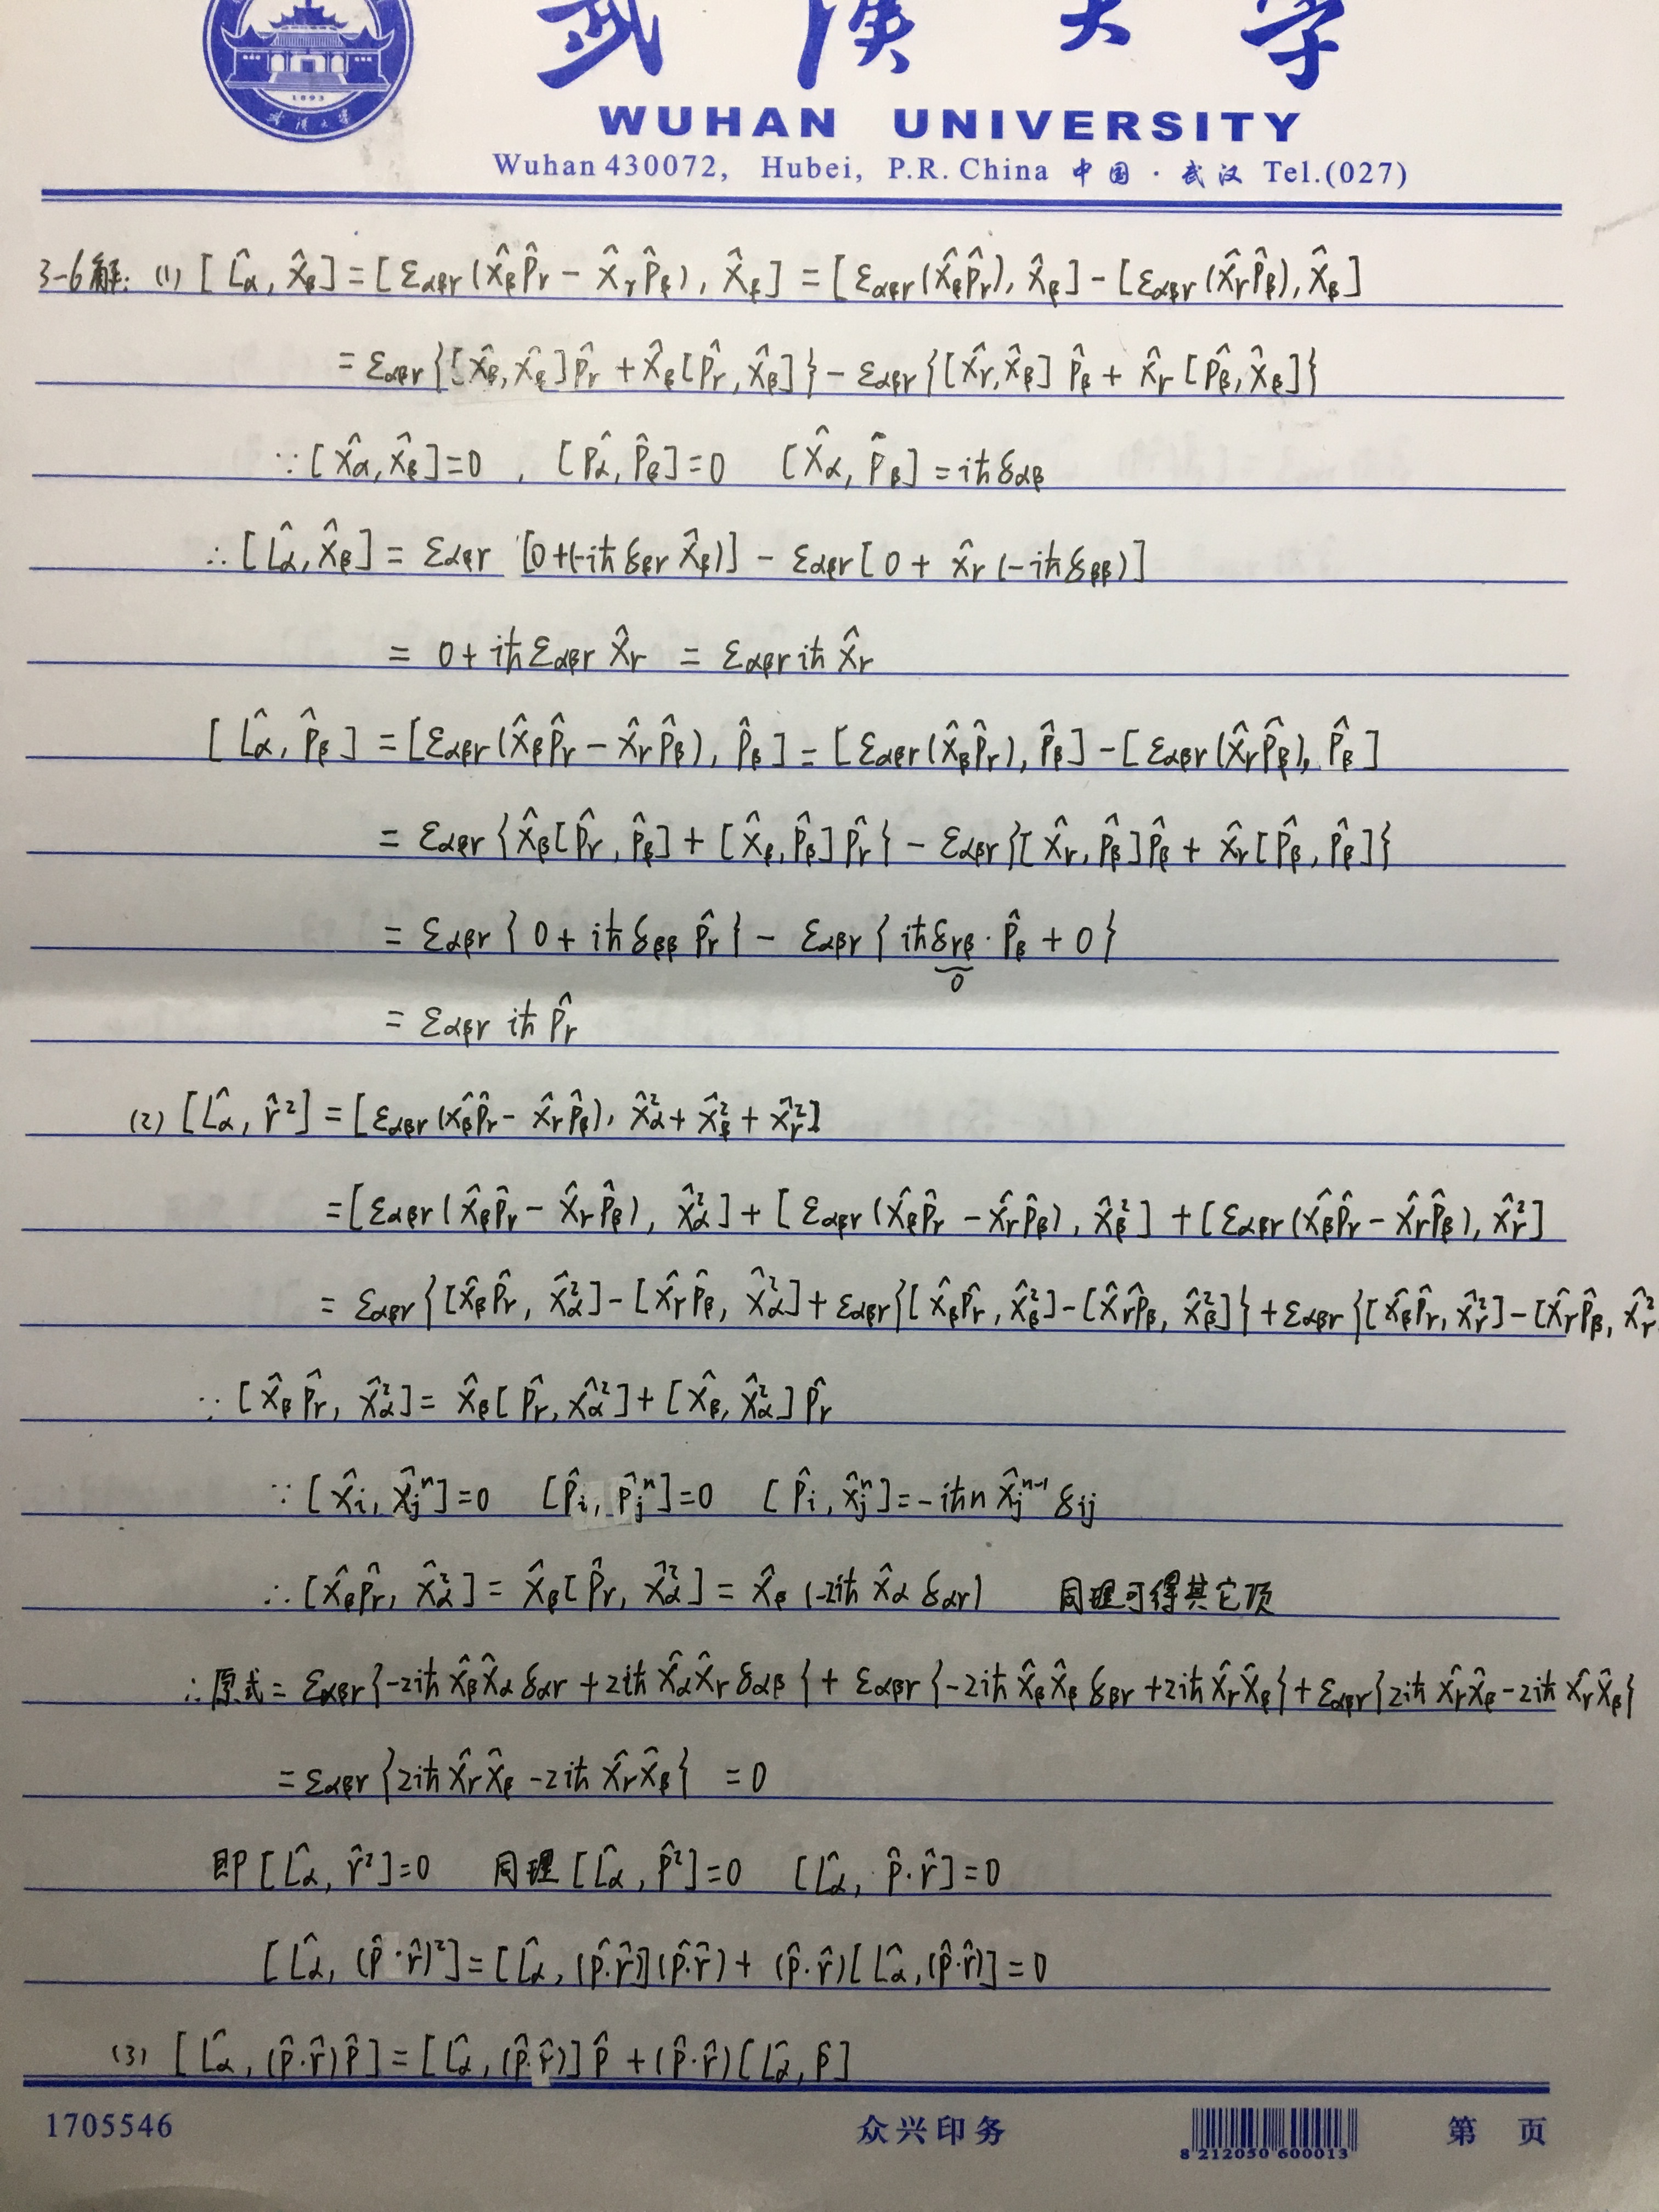 武漢大学
1893
武漢大学
WUHAN UNIVERSITY
Wuhan 430072, Hubei, P.R. China 中国·武汉 Tel.(027)
3-6解: (1) [L̂α, X̂β] = [εαβγ(X̂βP̂γ − X̂γP̂β), X̂β] = [εαβγ(X̂βP̂γ), X̂β] − [εαβγ(X̂γP̂β), X̂β]
= εαβγ{[X̂β, X̂β]P̂γ + X̂β[P̂γ, X̂β]} − εαβγ{[X̂γ, X̂β]P̂β + X̂γ[P̂β, X̂β]}
∵ [X̂α, X̂β]=0 , [P̂α, P̂β]=0 [X̂α, P̂β] = iħδαβ
∴ [L̂α, X̂β] = εαβγ [0+(-iħδβγX̂β)] − εαβγ[0 + X̂γ(-iħδββ)]
= 0 + iħεαβγX̂γ = εαβγiħX̂γ
[L̂α, P̂β] = [εαβγ(X̂βP̂γ − X̂γP̂β), P̂β] = [εαβγ(X̂βP̂γ), P̂β] − [εαβγ(X̂γP̂β), P̂β]
= εαβγ{X̂β[P̂γ, P̂β] + [X̂β, P̂β]P̂γ} − εαβγ{[X̂γ, P̂β]P̂β + X̂γ[P̂β, P̂β]}
= εαβγ{0 + iħδββP̂γ} − εαβγ{iħδγβ·P̂β + 0}
0
= εαβγiħP̂γ
(2) [L̂α, r̂²] = [εαβγ(X̂βP̂γ − X̂γP̂β), X̂α² + X̂β² + X̂γ²]
= [εαβγ(X̂βP̂γ − X̂γP̂β), X̂α²] + [εαβγ(X̂βP̂γ − X̂γP̂β), X̂β²] + [εαβγ(X̂βP̂γ − X̂γP̂β), X̂γ²]
= εαβγ{[X̂βP̂γ, X̂α²] − [X̂γP̂β, X̂α²] + εαβγ{[X̂βP̂γ, X̂β²] − [X̂γP̂β, X̂β²]} + εαβγ{[X̂βP̂γ, X̂γ²] − [X̂γP̂β, X̂γ²
∵ [X̂βP̂γ, X̂α²] = X̂β[P̂γ, X̂α²] + [X̂β, X̂α²]P̂γ
∵ [X̂i, X̂jⁿ]=0 [P̂i, P̂jⁿ]=0 [P̂i, X̂jⁿ] = -iħnX̂jⁿ⁻¹δij
∴ [X̂βP̂γ, X̂α²] = X̂β[P̂γ, X̂α²] = X̂β(-2iħX̂αδαγ) 同理可得其它项
∴ 原式 = εαβγ{-2iħX̂βX̂αδαγ + 2iħX̂αX̂γδαβ} + εαβγ{-2iħX̂βX̂βδβγ + 2iħX̂γX̂β} + εαβγ{2iħX̂γX̂β − 2iħX̂γX̂β}
= εαβγ{2iħX̂γX̂β − 2iħX̂γX̂β} = 0
即 [L̂α, r̂²]=0 同理 [L̂α, P̂²]=0 [L̂α, P̂·r̂]=0
[L̂α, (P̂·r̂)²] = [L̂α, (P̂·r̂)](P̂·r̂) + (P̂·r̂)[L̂α, (P̂·r̂)] = 0
(3) [L̂α, (P̂·r̂)P̂] = [L̂α, (P̂·r̂)]P̂ + (P̂·r̂)[L̂α, P̂]
1705546 众兴印务 8 212050 600013 第 页